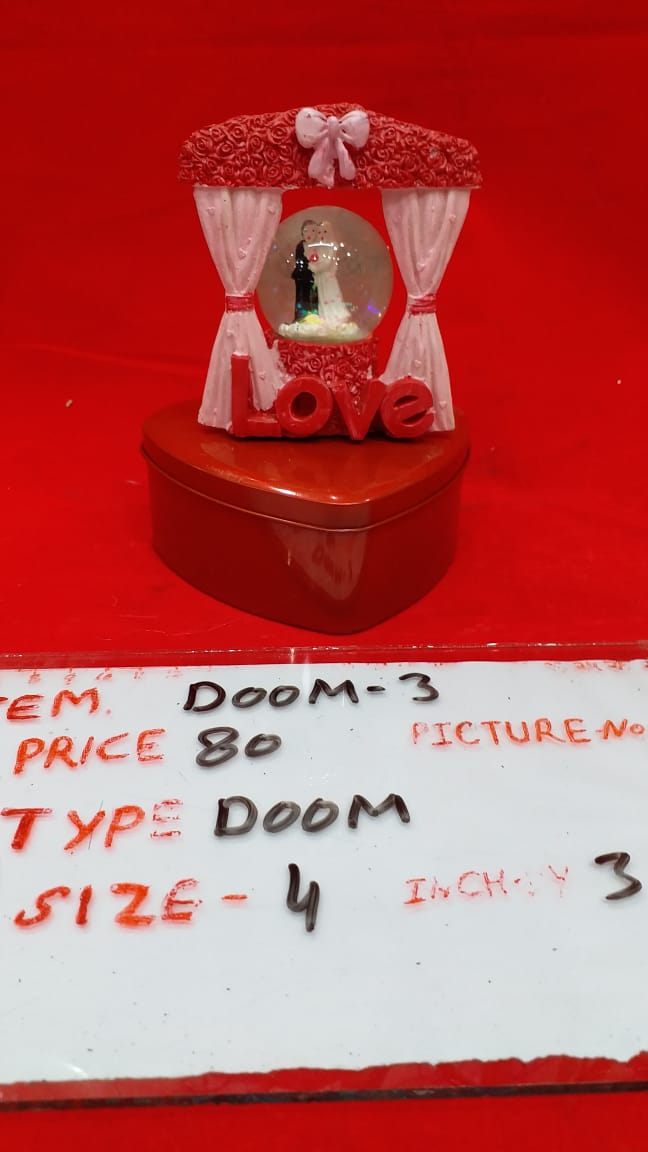 Love
TEM. DOOM-3
PRICE 80 PICTURE-No
TYPE DOOM
SIZE - 4 INCH-BY 3